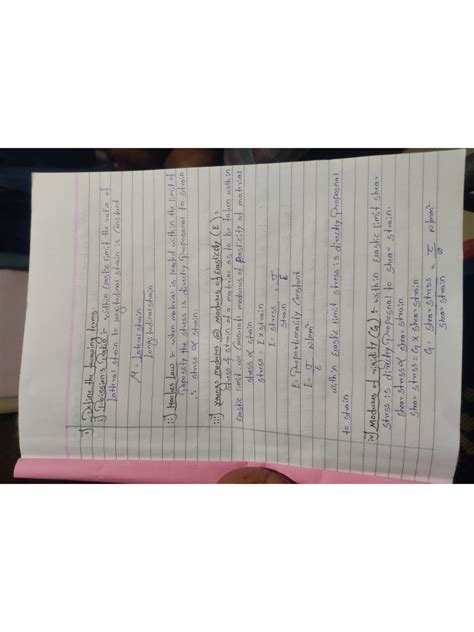 1) Define the following terms.
i) Poission's Ratio :- within elastic limit the ratio of
latteral strain to longitudinal strain is constant
μ = Lateral strain
Longitudinal strain
ii) Hookes law :- when material is loaded within the limit of
the stress is directly proposnal to strain
∴ stress ∝ strain
iii) Youngs modulus @ modulus of Elasticity (E) :-
Stress & strain of a matrial as to be taken with in
Elastic limit modulus of Elasticity of matrial
stress ∝ strain
stress = E x strain
E = stress = σ
strain ε
E = Proportionality Constant
E = σ N/mm²
ε
with in Elastic limit stress is directly proposnal
to strain
iv) Modulus of rigidity (G) :- with in Elastic limit shear
stress is directly proposnal to shear strain.
shear stress ∝ shear strain
shear stress = G x shear strain
G = shear stress = τ N/mm²
shear strain ø